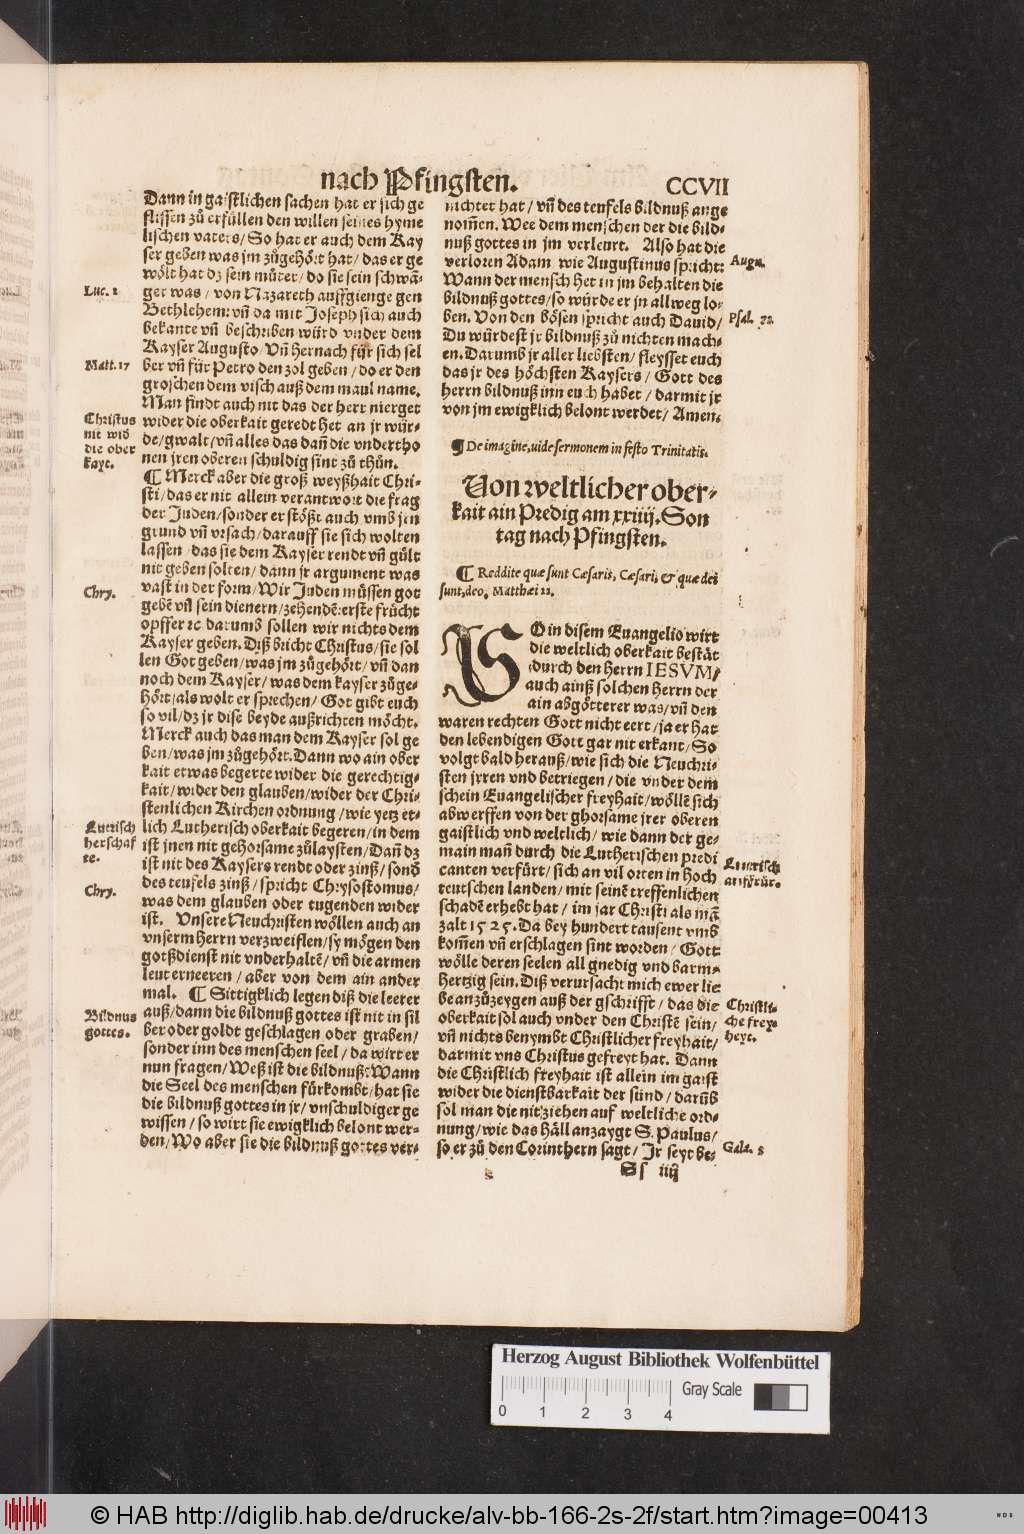 nach Pfingsten. CCVII
Dann in gaistlichen sachen hat er sich ge
flissen zů erfüllen den willen seines hyme
lischen vaters/ So hat er auch dem Kay
ser geben was jm zůgehört hat/ das er ge
wölt hat dz sein můter/ do sie sein schwā-
ger was/ von Nazareth auffgienge gen
Bethlehem: vñ da mit Joseph sich auch
bekante vñ beschriben würd vnder dem
Kayser Augusto/ Vñ hernach für sich sel
ber vñ für Petro den zol geben/ do er den
groschen dem visch auß dem maul name.
Man findt auch nit das der herr nierget
wider die oberkait geredt het an jr wür-
de/gwalt/vñ alles das dañ die vndertho
nen jren oberen schuldig sint zů thůn.
¶ Merck aber die groß weyßhait Chri-
sti/ das er nit allein verantwort die frag
der Juden/ sonder er stößt auch vmb jrn
grund vñ vrsach/ darauff sie sich wolten
lassen/ das sie dem Kayser rendt vñ gült
nit geben solten/ dann jr argument was
vast in der form/ Wir Juden müssen got
gebē vñ sein dienern/ zehendē: erste frücht
opffer ꝛc darumb sollen wir nichts dem
Kayser geben. Diß bricht Christus/ sie sol
len Got geben/ was jm zůgehört/ vñ dan
noch dem Kayser/ was dem kayser zůge-
hört/ als wolt er sprechen/ Got gibt euch
so vil/ dz jr dise beyde außrichten möcht.
Merck auch das man dem Kayser sol ge
ben/ was jm zůgehört. Dann wo ain ober
kait etwas begerte wider die gerechtig-
kait/ wider den glauben/ wider der Chri-
stenlichen Kirchen ordnung/ wie yetz et-
lich Lutherisch oberkait begeren/ in dem
ist jnen nit gehorsame zůlaysten/ Dañ dz
ist nit des Kaysers rendt oder zinß/ sond
des teufels zinß/ spricht Chrysostomus/
was dem glauben oder tugenden wider
ist. Vnsere Neuchristen wöllen auch an
vnserm herrn verzweiflen/ sy mögen den
gotßdienst nit vnderhaltē/ vñ die armen
leut erneeren/ aber von dem ain ander
mal. ¶ Sittigklich legen diß die leerer
auß/ dann die bildnuß gottes ist nit in sil
ber oder goldt geschlagen oder graben/
sonder inn des menschen seel/ da wirt er
nun fragen/ Weß ist die bildnuß: Wann
die Seel des menschen fürkombt/ hat sie
die bildnuß gottes in jr/ vnschuldiger ge
wissen/ so wirt sie ewigklich belont wer-
den/ Wo aber sie die bildnuß gottes ver-
Luc. 2
Matt. 17
Christus
nit wid
die ober
kayt.
Chry.
Luterisch
herschaf
te.
Chry.
Bildnus
gottes.
nichtet hat/ vñ des teufels bildnuß ange
nom̄en. Wee dem menschen der die bild-
nuß gottes in jm verleurt. Also hat die
verloren Adam wie Augustinus spricht:
Wann der mensch het in jm behalten die
bildnuß gottes/ so würde er jn allweg lo-
ben. Von den bösen spricht auch Dauid/
Du würdest jr bildnuß zů nichten mach-
en. Darumb jr aller liebsten/ fleysset euch
das jr des höchsten Kaysers/ Gott des
herrn bildnuß inn euch habet/ darmit jr
von jm ewigklich belont werdet/ Amen.
¶ De imagine, uide sermonem in festo Trinitatis.
Von weltlicher ober-
kait ain Predig am xxiiij. Son
tag nach Pfingsten.
¶ Reddite quæ sunt Cæsaris, Cæsari, & quæ dei
sunt, deo, Matthæi 22.
SO in disem Euangelio wirt
die weltlich oberkait bestät
durch den Herrn IESVM/
auch ainß solchen Herrn der
ain abgötterer was/ vñ den
waren rechten Gott nicht eert/ ja er hat
den lebendigen Gott gar nit erkant/ So
volgt bald herauß/ wie sich die Neuchri-
sten jrren vnd betriegen/ die vnder dem
schein Euangelischer freyhait/ wöllē sich
abwerffen von der ghorsame jrer oberen
gaistlich vnd weltlich/ wie dann der ge-
main mañ durch die Lutherischen predi
canten verfürt/ sich an vil orten in Hoch
teutschen landen/ mit seinē treffenlichen
schadē erhebt hat/ im jar Christi als mā
zalt 1525. Da bey hundert tausent vmb
kom̄en vñ erschlagen sint worden/ Gott
wölle deren seelen all gnedig vnd barm-
hertzig sein. Diß verursacht mich ewer lie
be anzůzeygen auß der gschrifft/ das die
oberkait sol auch vnder den Christē sein/
vñ nichts benymbt Christlicher freyhait/
darmit vns Christus gefreyt hat. Dann
die Christlich freyhait ist allein im gaist
wider die dienstbarkait der sünd/ darūb
sol man die nit ziehen auf weltliche ord-
nung/ wie das häll anzaygt S. Paulus/
so er zů den Corinthern sagt/ Jr seyt be-
Ss iiij
Augu.
Psal. 72.
Luterisch
auffrůr.
Christli-
che frey-
heyt.
Gala. 5
Herzog August Bibliothek Wolfenbüttel
Gray Scale
0 1 2 3 4
© HAB http://diglib.hab.de/drucke/alv-bb-166-2s-2f/start.htm?image=00413